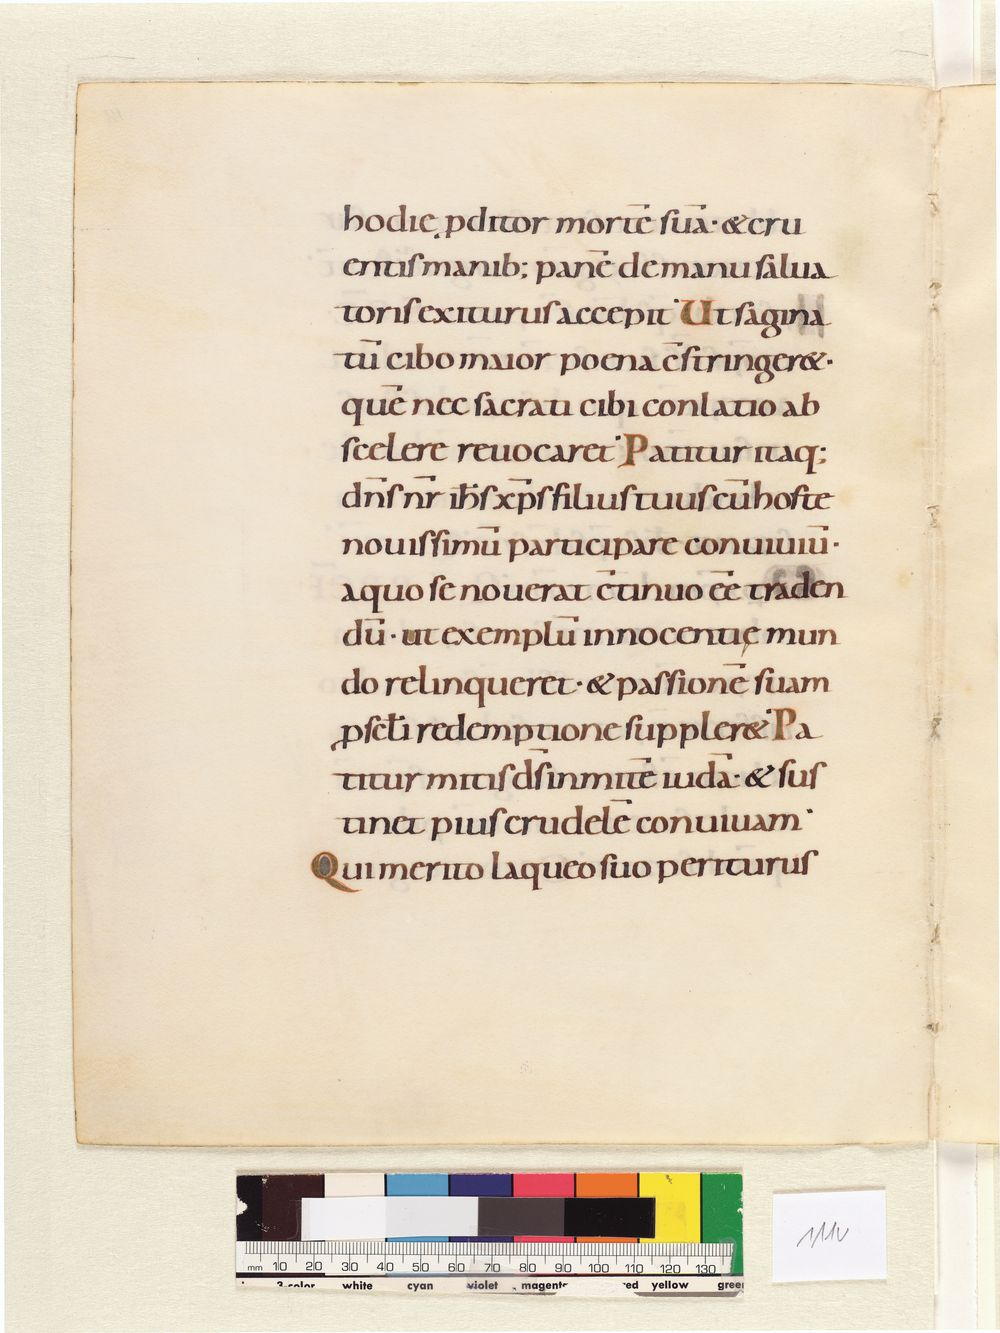 hodie ꝓditor mortē suā· & cru
entis manib; panē de manu salua
toris exiturus accepit· Ut sagina
tū cibo maior poena c̄stringer&·
quē nec sacrati cibi conlatio ab
scelere reuocaret· Patitur itaq;
dn̄s nr̄ ih̄s xp̄s filius tuus cū hoste
nouissimū participare conuiuiū·
a quo se nouerat c̄tinuo eē traden
dū· ut exemplū innocentię mun
do relinqueret· & passionē suam
ꝓ scłi redemptione suppler&· Pa
titur mitis d̄s inmitē iudā· & sus
tinet pius crudelē conuiuam·
Qui merito laqueo suo periturus
111v
mm 10 20 30 40 50 60 70 80 90 100 110 120 130
3-color white cyan violet magenta red yellow green